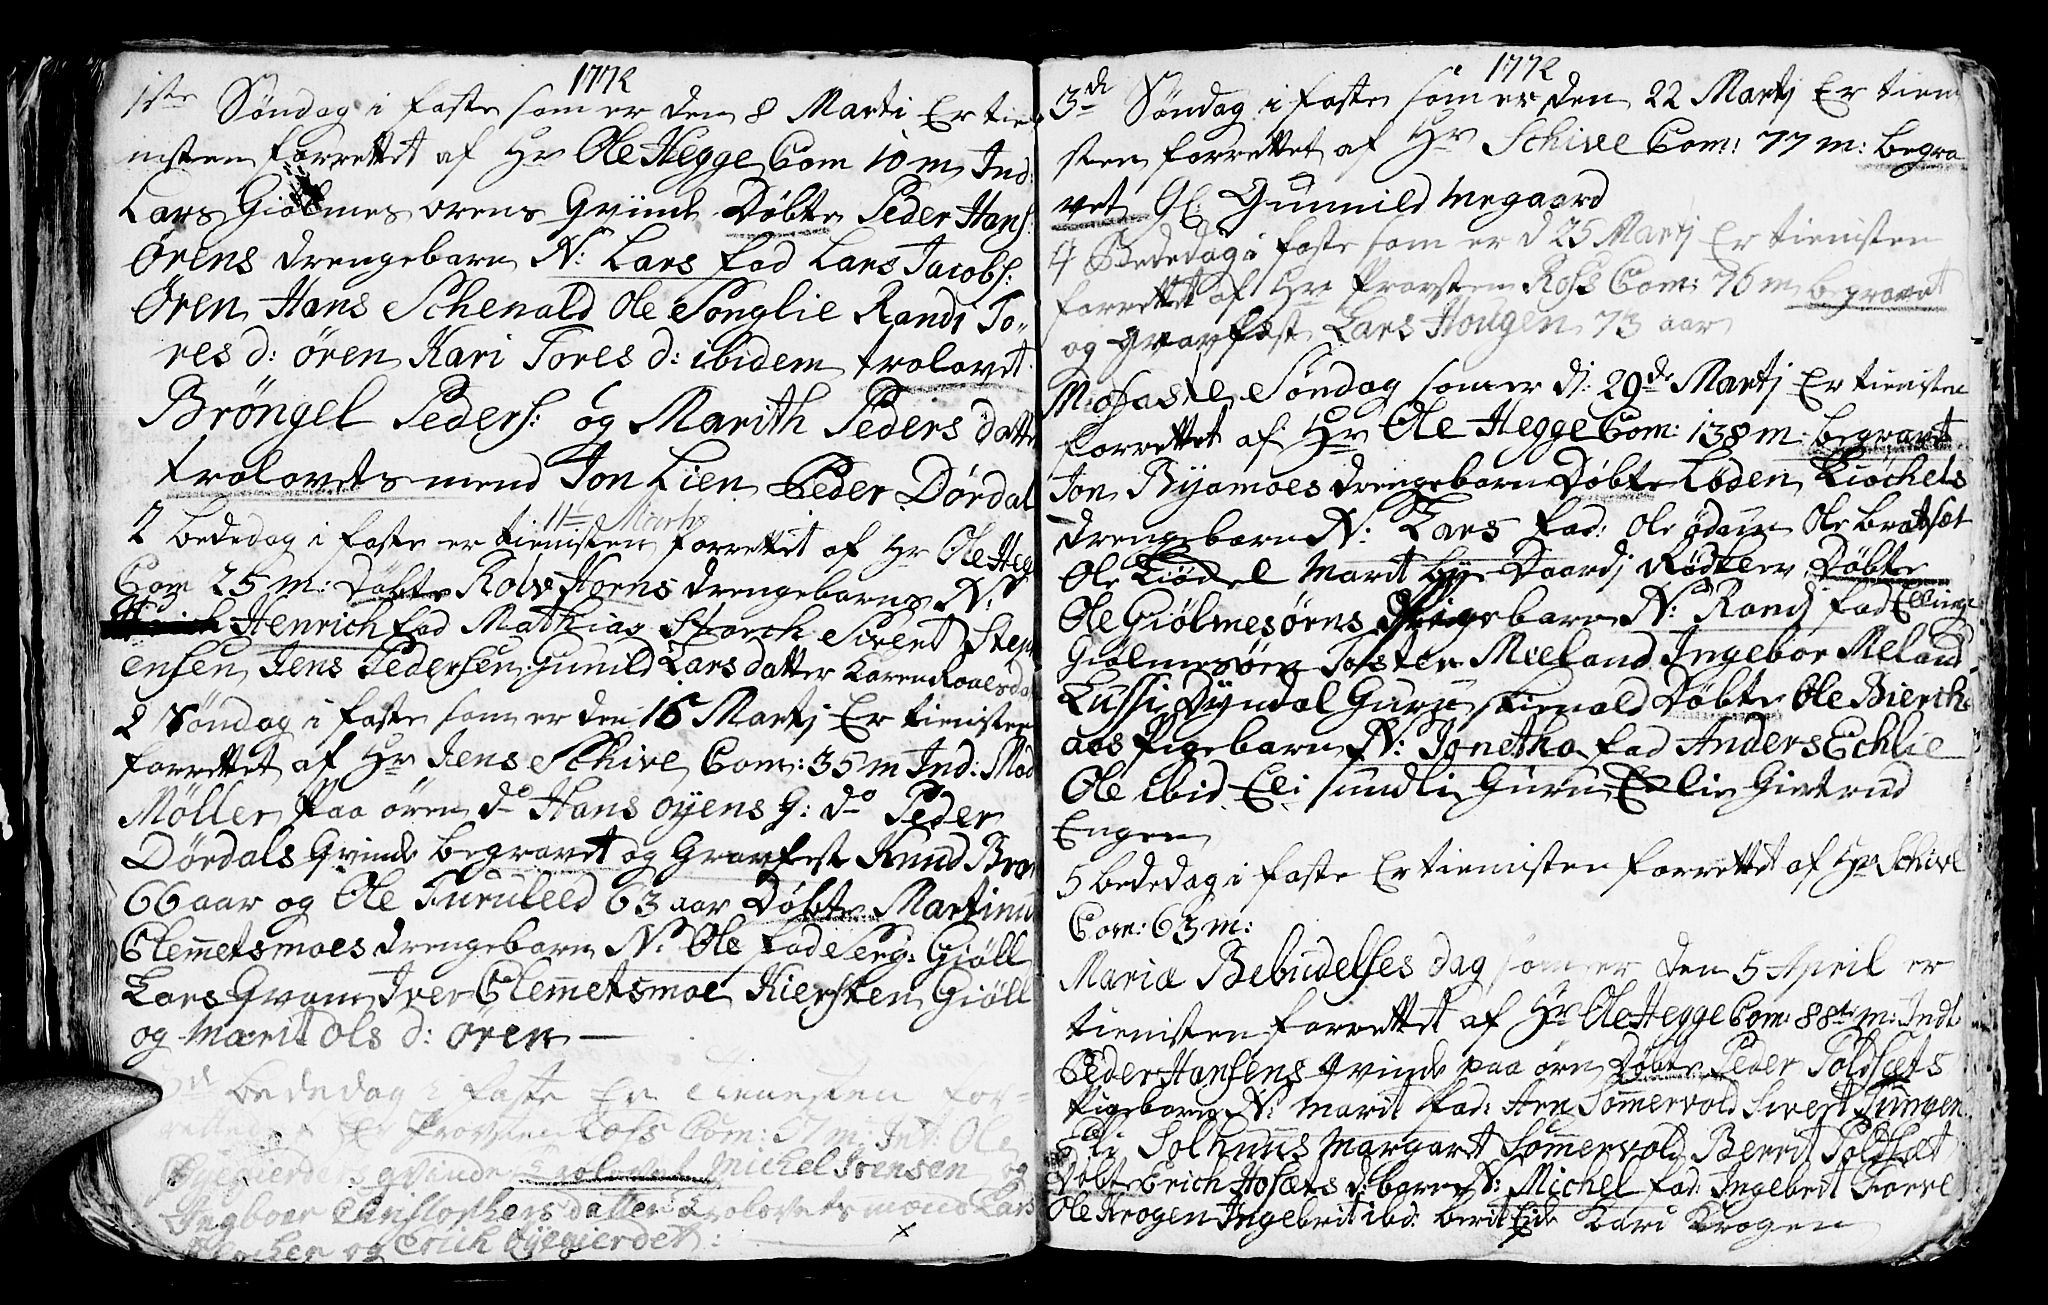 1772
1ste Søndag i faste som er den 8 Marti Er tie
nisten forrettet af Hr Ole Hegge Com 10 m Ind:
Lars Giølmes ørens Qvinde Døbte Peder Hans:
Ørens drengebarn N: Lars fad Lars Jacobs:
Ören Hans Schenald Ole Songlie Randi To-
res d: ören Kari Tores d: ibidem trolovet
Bröngel Peders: og Marith Peders datte
trolovets mend Jon Lien Peder Dørdal
11te Marty
2 bededag i faste er tienisten forrettet af Hr Ole Heg
Com 25 m: Døbte Rolv Hoens drengebarn N:
Henrich fad Mathias Storch Sivert Steph
ensen Jens Pedersen gunild Lars datter Karen Roalesda
2 Søndag i faste som er den 15 Martj Er tienisten
forrettet af Hr Jens Schive Com: 35 m Ind: Mad
Møller paa ören do Hans øyens G: do Peder
Dørdals Qvinde begravet og Gravfest Knud Bra
66 aar og Ole Furuleed 63 aar Døbte Martinu
Clemetsmoes drengebarn N: Ole fad Serg: Giöll
Lars Gvam Iver Clemetsmoe Kiersten Giöll
og Marit Ols d: ören
3de bededag i faste Er tienesten for-
rettet af Hr Provsten Ross Com: 57 m: Int: Ole
Øyegierdets qvinde trolovet Michel Iversen og
Ingboer Christophers datter trolovets mænd Lars
og Erich Øyegierdet: x
1772
3de Søndag i faste som er den 22 Martj Er tieni
sten forrettet af Hr Schive Com: 77 m: begra
vet Gl: Gunnild Megaard
4 Bededag i faste som er d 25 Martj Er tienisten
forrettet af Hr Provsten Ross Com: 76 m begravet
og gravfæst Lars Hougen 73 aar
Mitfaste Søndag som er d: 29de Martj Er tienisten
forrettet af Hr Ole Hegge Com: 138 m: begravet
Jon Byamoes drengebarn Døbte Loden Kiøchets
drengebarn N: Lars fad: Ole ødaun Ole bratset
Ole Kiødel Marit bye Daardj Rødtlev Døbte
Ole Giölmesørns Pigebarn N: Randj fad Ellinge
Giølmesøren Torsten Mieland Ingebor Meland
Lussi Dyndal Guru skienald Døbte Ole Bierch
aas Pigebarn N: Jonetha fad Anders Echlie
Ole Ibid Eli sundli Guru Eklie Giertrud
Engen
5 bededag i faste Er tienisten forrettet af Hr Schive
Com: 63 m:
Mariæ Bebudelses dag som er den 5 April er
tienisten forrettet af Hr Ole Hegge Com: 88 m: Indl:
Peder Hansens qvinde paa ören Døbte Peder Soldsets
Pigebarn N: Marit Fad: Arn Sommervold Sivert Jungen
Eli Solhuus Margaret Sommervold Berrit Soldset
Døbte Erich Hosets d: barn N: Michel fad: Ingebrit
Ole Krogen Ingebrit ibd: berit Eide Kari Krogen